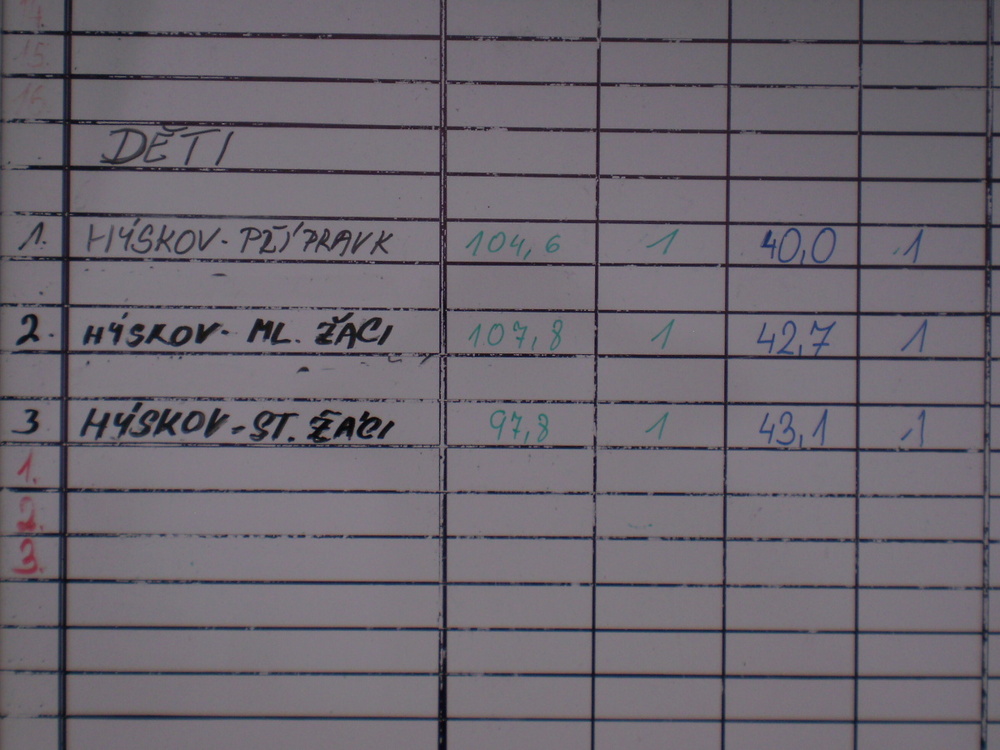 14.
15.
16.
DĚTI
1. HÝSKOV - PŘÍPRAVK 104,6 1 40,0 1
2. HÝSKOV - ML. ŽÁCI 107,8 1 42,7 1
3 HÝSKOV - ST. ŽÁCI 97,8 1 43,1 1
1.
2.
3.